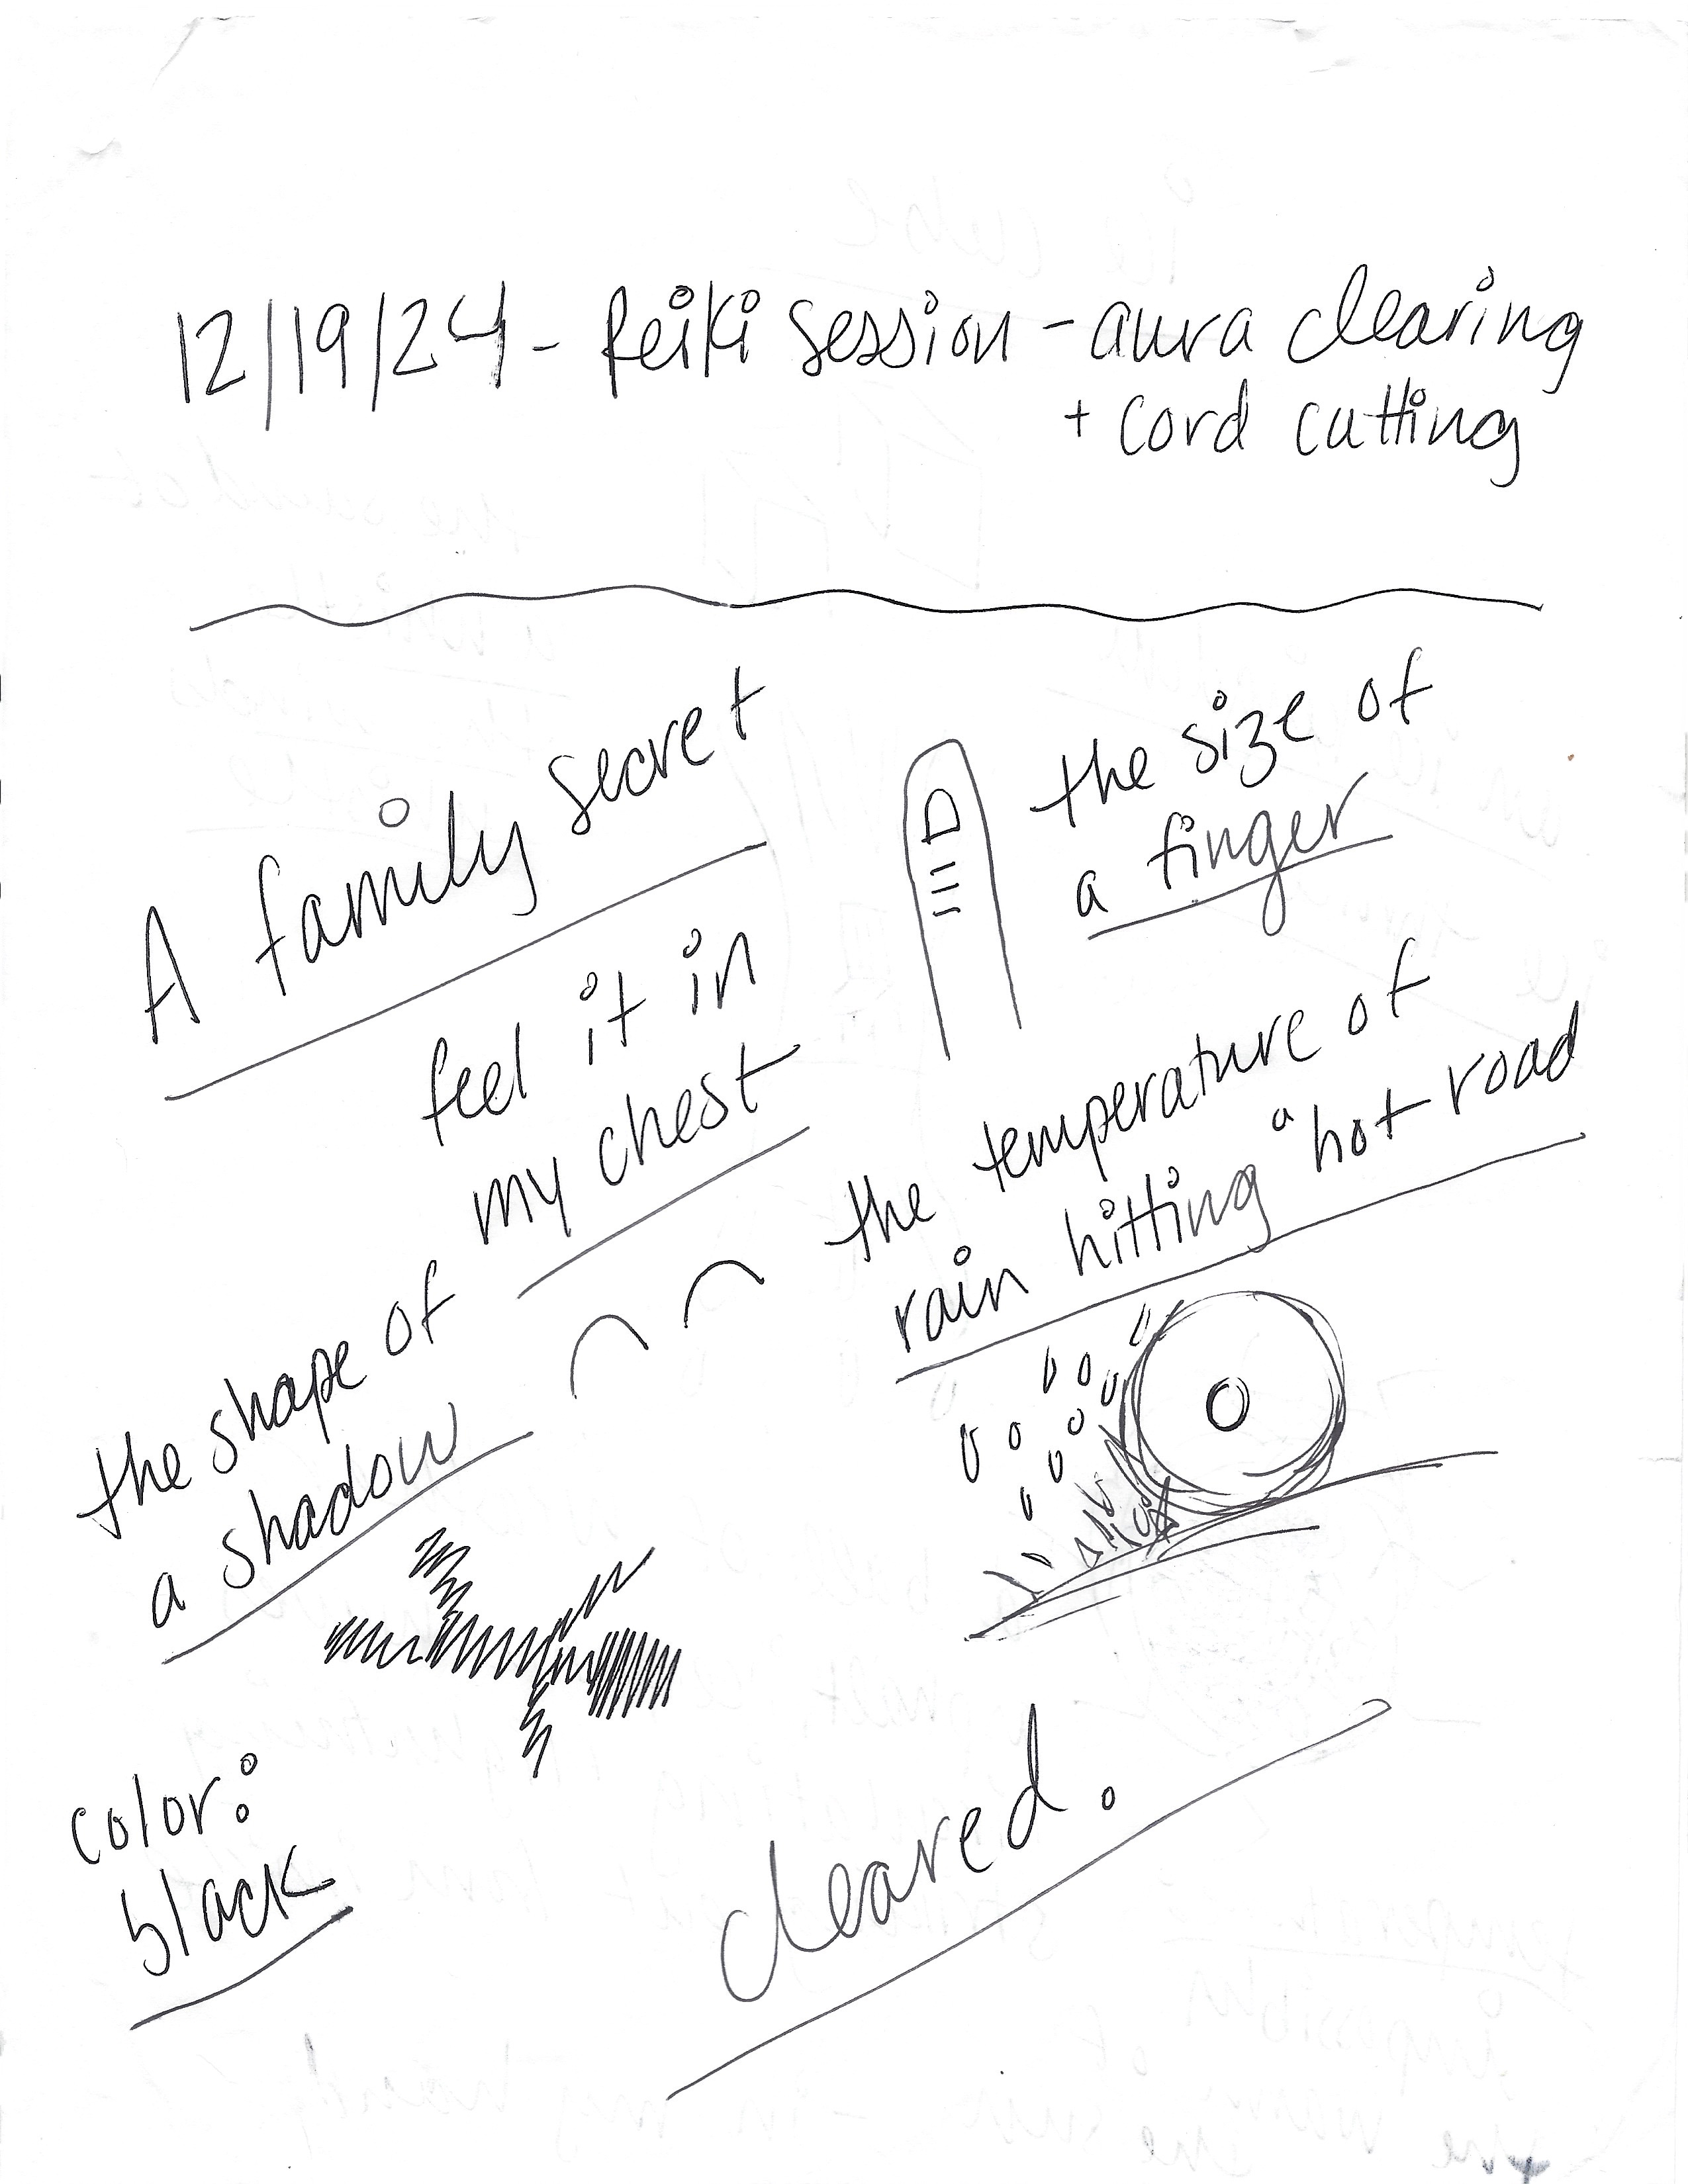 12/19/24 - Reiki session - aura clearing
+ cord cutting
A family secret
feel it in
my chest
the shape of
a shadow
color:
black
the size of
a finger
the temperature of
rain hitting a hot road
cleared.